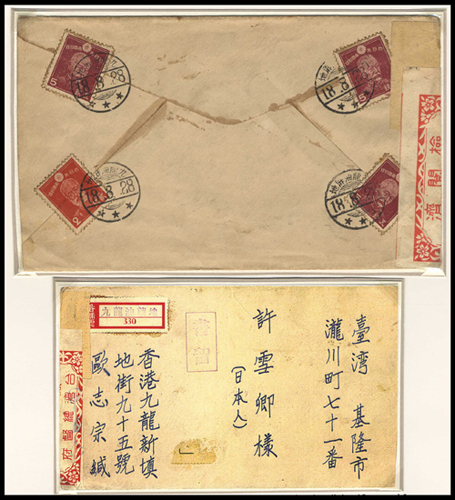 18.8.28
18.8.28
18.8.28
18.8.28
檢閱濟
330
書留
臺灣 基隆市
瀧川町七十一番
許雪卿樣
(日本人)
香港九龍新填
地街九十五號
歐志宗緘